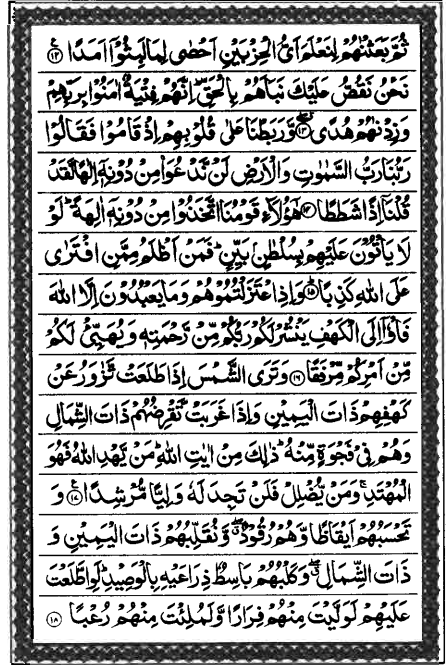 ثُمَّ بَعَثْنٰهُمْ لِنَعْلَمَ اَیُّ الْحِزْبَیْنِ اَحْصٰی لِمَا لَبِثُوْۤا اَمَدًا ﴿۱۲﴾
نَحْنُ نَقُصُّ عَلَیْكَ نَبَاَهُمْ بِالْحَقِّ ؕ اِنَّهُمْ فِتْیَةٌ اٰمَنُوْا بِرَبِّهِمْ
وَ زِدْنٰهُمْ هُدًی ﴿۱۳﴾ وَّ رَبَطْنَا عَلٰی قُلُوْبِهِمْ اِذْ قَامُوْا فَقَالُوْا
رَبُّنَا رَبُّ السَّمٰوٰتِ وَ الْاَرْضِ لَنْ نَّدْعُوَاۡ مِنْ دُوْنِهٖۤ اِلٰهًا لَّقَدْ
قُلْنَاۤ اِذًا شَطَطًا ﴿۱۴﴾ هٰۤؤُلَآءِ قَوْمُنَا اتَّخَذُوْا مِنْ دُوْنِهٖۤ اٰلِهَةً ؕ لَوْ
لَا یَاْتُوْنَ عَلَیْهِمْ بِسُلْطٰنٍۭ بَیِّنٍ ؕ فَمَنْ اَظْلَمُ مِمَّنِ افْتَرٰی
عَلَی اللّٰهِ كَذِبًا ﴿۱۵﴾ وَ اِذِ اعْتَزَلْتُمُوْهُمْ وَ مَا یَعْبُدُوْنَ اِلَّا اللّٰهَ
فَاْوٗۤا اِلَی الْكَهْفِ یَنْشُرْ لَكُمْ رَبُّكُمْ مِّنْ رَّحْمَتِهٖ وَ یُهَیِّئْ لَكُمْ
مِّنْ اَمْرِكُمْ مِّرْفَقًا ﴿۱۶﴾ وَ تَرَی الشَّمْسَ اِذَا طَلَعَتْ تَّزٰوَرُ عَنْ
كَهْفِهِمْ ذَاتَ الْیَمِیْنِ وَ اِذَا غَرَبَتْ تَّقْرِضُهُمْ ذَاتَ الشِّمَالِ
وَ هُمْ فِیْ فَجْوَةٍ مِّنْهُ ؕ ذٰلِكَ مِنْ اٰیٰتِ اللّٰهِ ؕ مَنْ یَّهْدِ اللّٰهُ فَهُوَ
الْمُهْتَدِ ۚ وَ مَنْ یُّضْلِلْ فَلَنْ تَجِدَ لَهٗ وَلِیًّا مُّرْشِدًا ﴿۱۷﴾ وَ
تَحْسَبُهُمْ اَیْقَاظًا وَّ هُمْ رُقُوْدٌ ۖۗ وَّ نُقَلِّبُهُمْ ذَاتَ الْیَمِیْنِ وَ
ذَاتَ الشِّمَالِ ۖۗ وَ كَلْبُهُمْ بَاسِطٌ ذِرَاعَیْهِ بِالْوَصِیْدِ ؕ لَوِ اطَّلَعْتَ
عَلَیْهِمْ لَوَلَّیْتَ مِنْهُمْ فِرَارًا وَّ لَمُلِئْتَ مِنْهُمْ رُعْبًا ﴿۱۸﴾